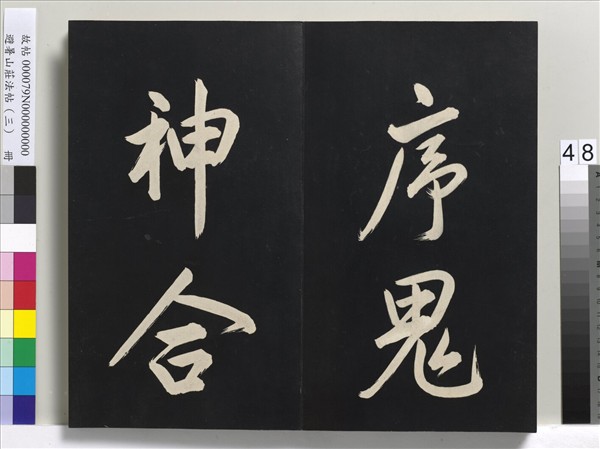 序鬼
神合
故帖 000079N000000000
避暑山莊法帖（三） 冊
48